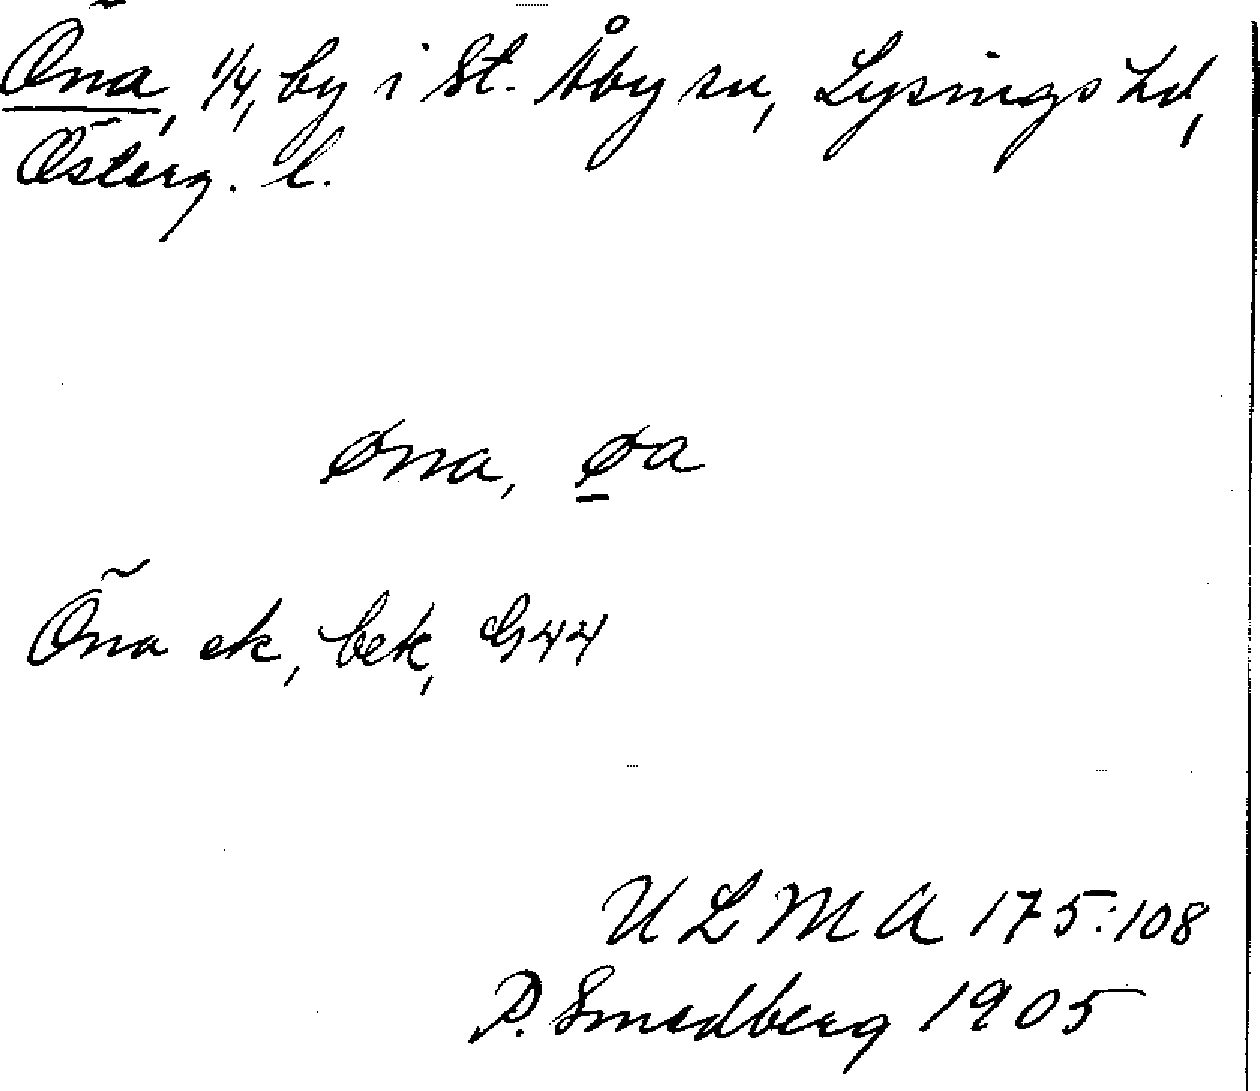 Öna, 1/4, by i St. Åby sn, Lysings hd,
Österg. l.
øna, ø̲a
Öna ek, bek, G44
ULMA 175:108
P. Smedberg 1905